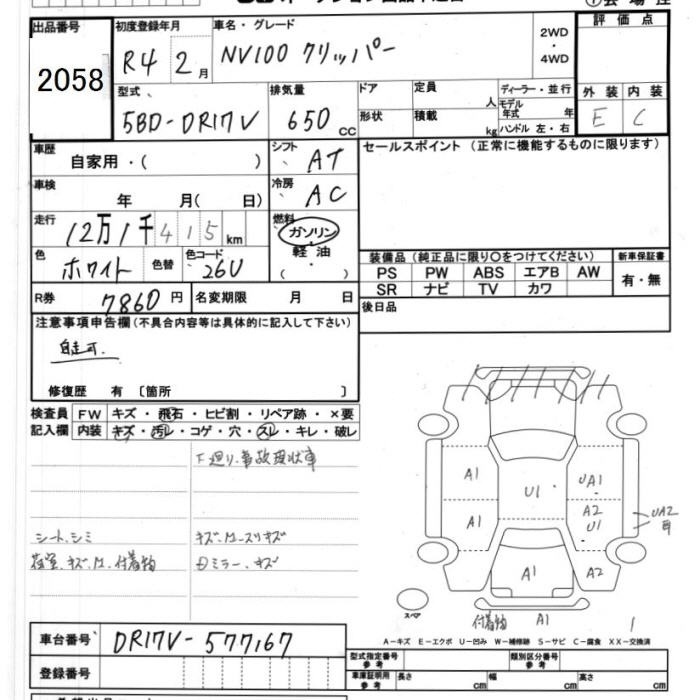 出品番号 初度登録年月 車名・グレード 2WD・4WD 評価点
2058 R4年 2月 NV100 クリッパー
型式 排気量 ドア 定員 人 ディーラー・並行 外装 内装
5BD-DR17V 650cc 形状 積載 kg モデル年式 年 ハンドル 左・右 E C
車歴 自家用・( ) シフト AT セールスポイント(正常に機能するものに限ります)
車検 年 月( 日) 冷房 AC
走行 12万1千415km 燃料 ガソリン・軽油・( )
色 ホワイト 色替 色コード 26U
装備品(純正品に限り○をつけてください) 新車保証書
PS PW ABS エアB AW 有・無
SR ナビ TV カワ
R券 7860円 名変期限 月 日 後日品
注意事項申告欄(不具合内容等は具体的に記入して下さい)
自走可.
修復歴 有〔箇所 〕
検査員 FW キズ・飛石・ヒビ割・リペア跡・×要
記入欄 内装 キズ・汚レ・コゲ・穴・スレ・キレ・破レ
下廻り.事故現状車
シート.シミ
付着物
Dミラー.キズ
A1 UA1
U1
A1 A2 U1 UA2
A1 A2
スペア 付着物 A1
A-キズ E-エクボ U-凹み W-補修跡 S-サビ C-腐食 XX-交換済
車台番号 DR17V-577167
型式指定番号 参考 類別区分番号 参考
登録番号 車庫証明用 参考 長さ cm 幅 cm 高さ cm